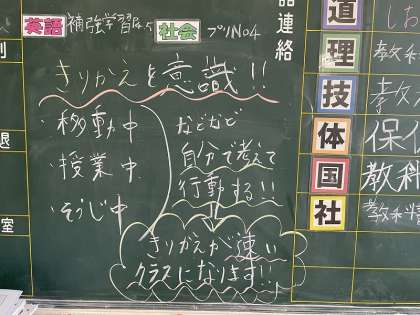 英語 補強学習 社会 プリNo4
きりかえを意識!!
・移動中
・授業中
・そうじ中
などなど
自分で考えて
行動する!!
きりかえが速い
クラスになります!!
連絡
道
理 教科
技 教
体 保
国 教科
社 教科書
退
室